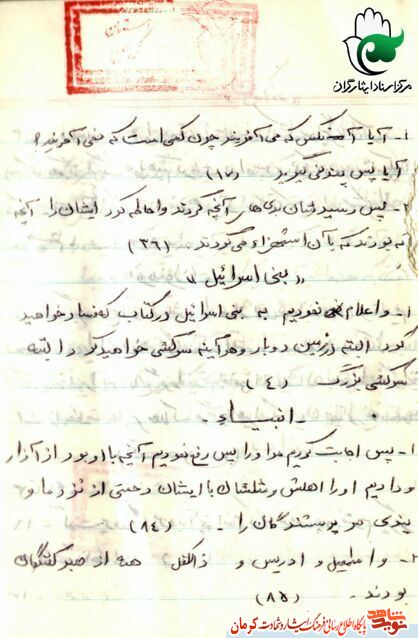 مرکز اسناد ایثارگران
۱- آیا آنکس که می آفریند چون کسی است که نمی آفریند؟
آیا پس پند نمی گیرید (۱۷)
۲- پس رسید ایشان بدی های آنچه کردند و احاطه کرد ایشان را آنچه
که بودند که با آن استهزاء می کردند. (۳۹)
« بنی اسرائیل »
۱- و اعلام نمودیم به بنی اسرائیل در کتاب که فساد خواهید
کرد البته در زمین دوبار و هر آینه سرکشی خواهید کرد البته
سرکشی بزرگ (٤)
- انبیاء -
۱- پس اجابت کردیم مر او را پس رفع نمودیم آنچه با او بود از آزار
و دادیم او را اهلش و مثلشان با ایشان رحمتی از نزد ما و
پندی مر پرستندگان را - (۸٤)
۲- و اسمعیل و ادریس و ذاالکفل همه از صبر کنندگان
بودند - (۸۵)
نوید شاهد
پایگاه اطلاع رسانی فرهنگ ایثار و شهادت کرمان